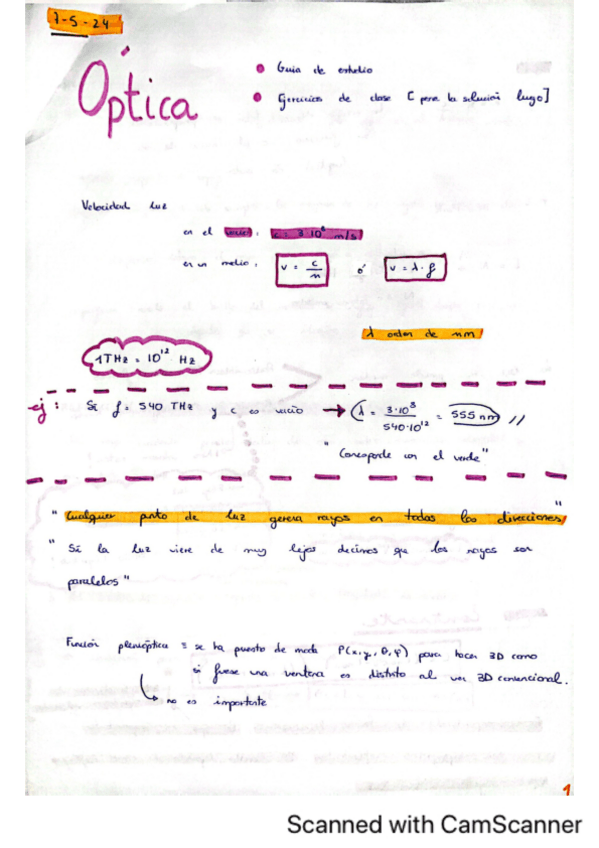 7-5-24
Óptica
Guia de estudio
Ejercicios de clase [ pone la solución luego]
Velocidad luz
en el vacio: c = 3·10⁸ m/s
en un medio: v = c/n ó v = λ·f
λ orden de nm
1THz = 10¹² Hz
ej: Si f = 540 THz y c es vacio → λ = 3·10⁸/540·10¹² = 555 nm //
"Corresponde con el verde"
"Cualquier punto de luz genera rayos en todas las direcciones"
"Si la luz viene de muy lejos decimos que los rayos son
paralelos"
Función plenóptica ≡ se ha puesto de moda P(x,y,θ,φ) para hacer 3D como
si fuese una ventana es distinto al ver 3D convencional.
↳ no es importante
1
Scanned with CamScanner